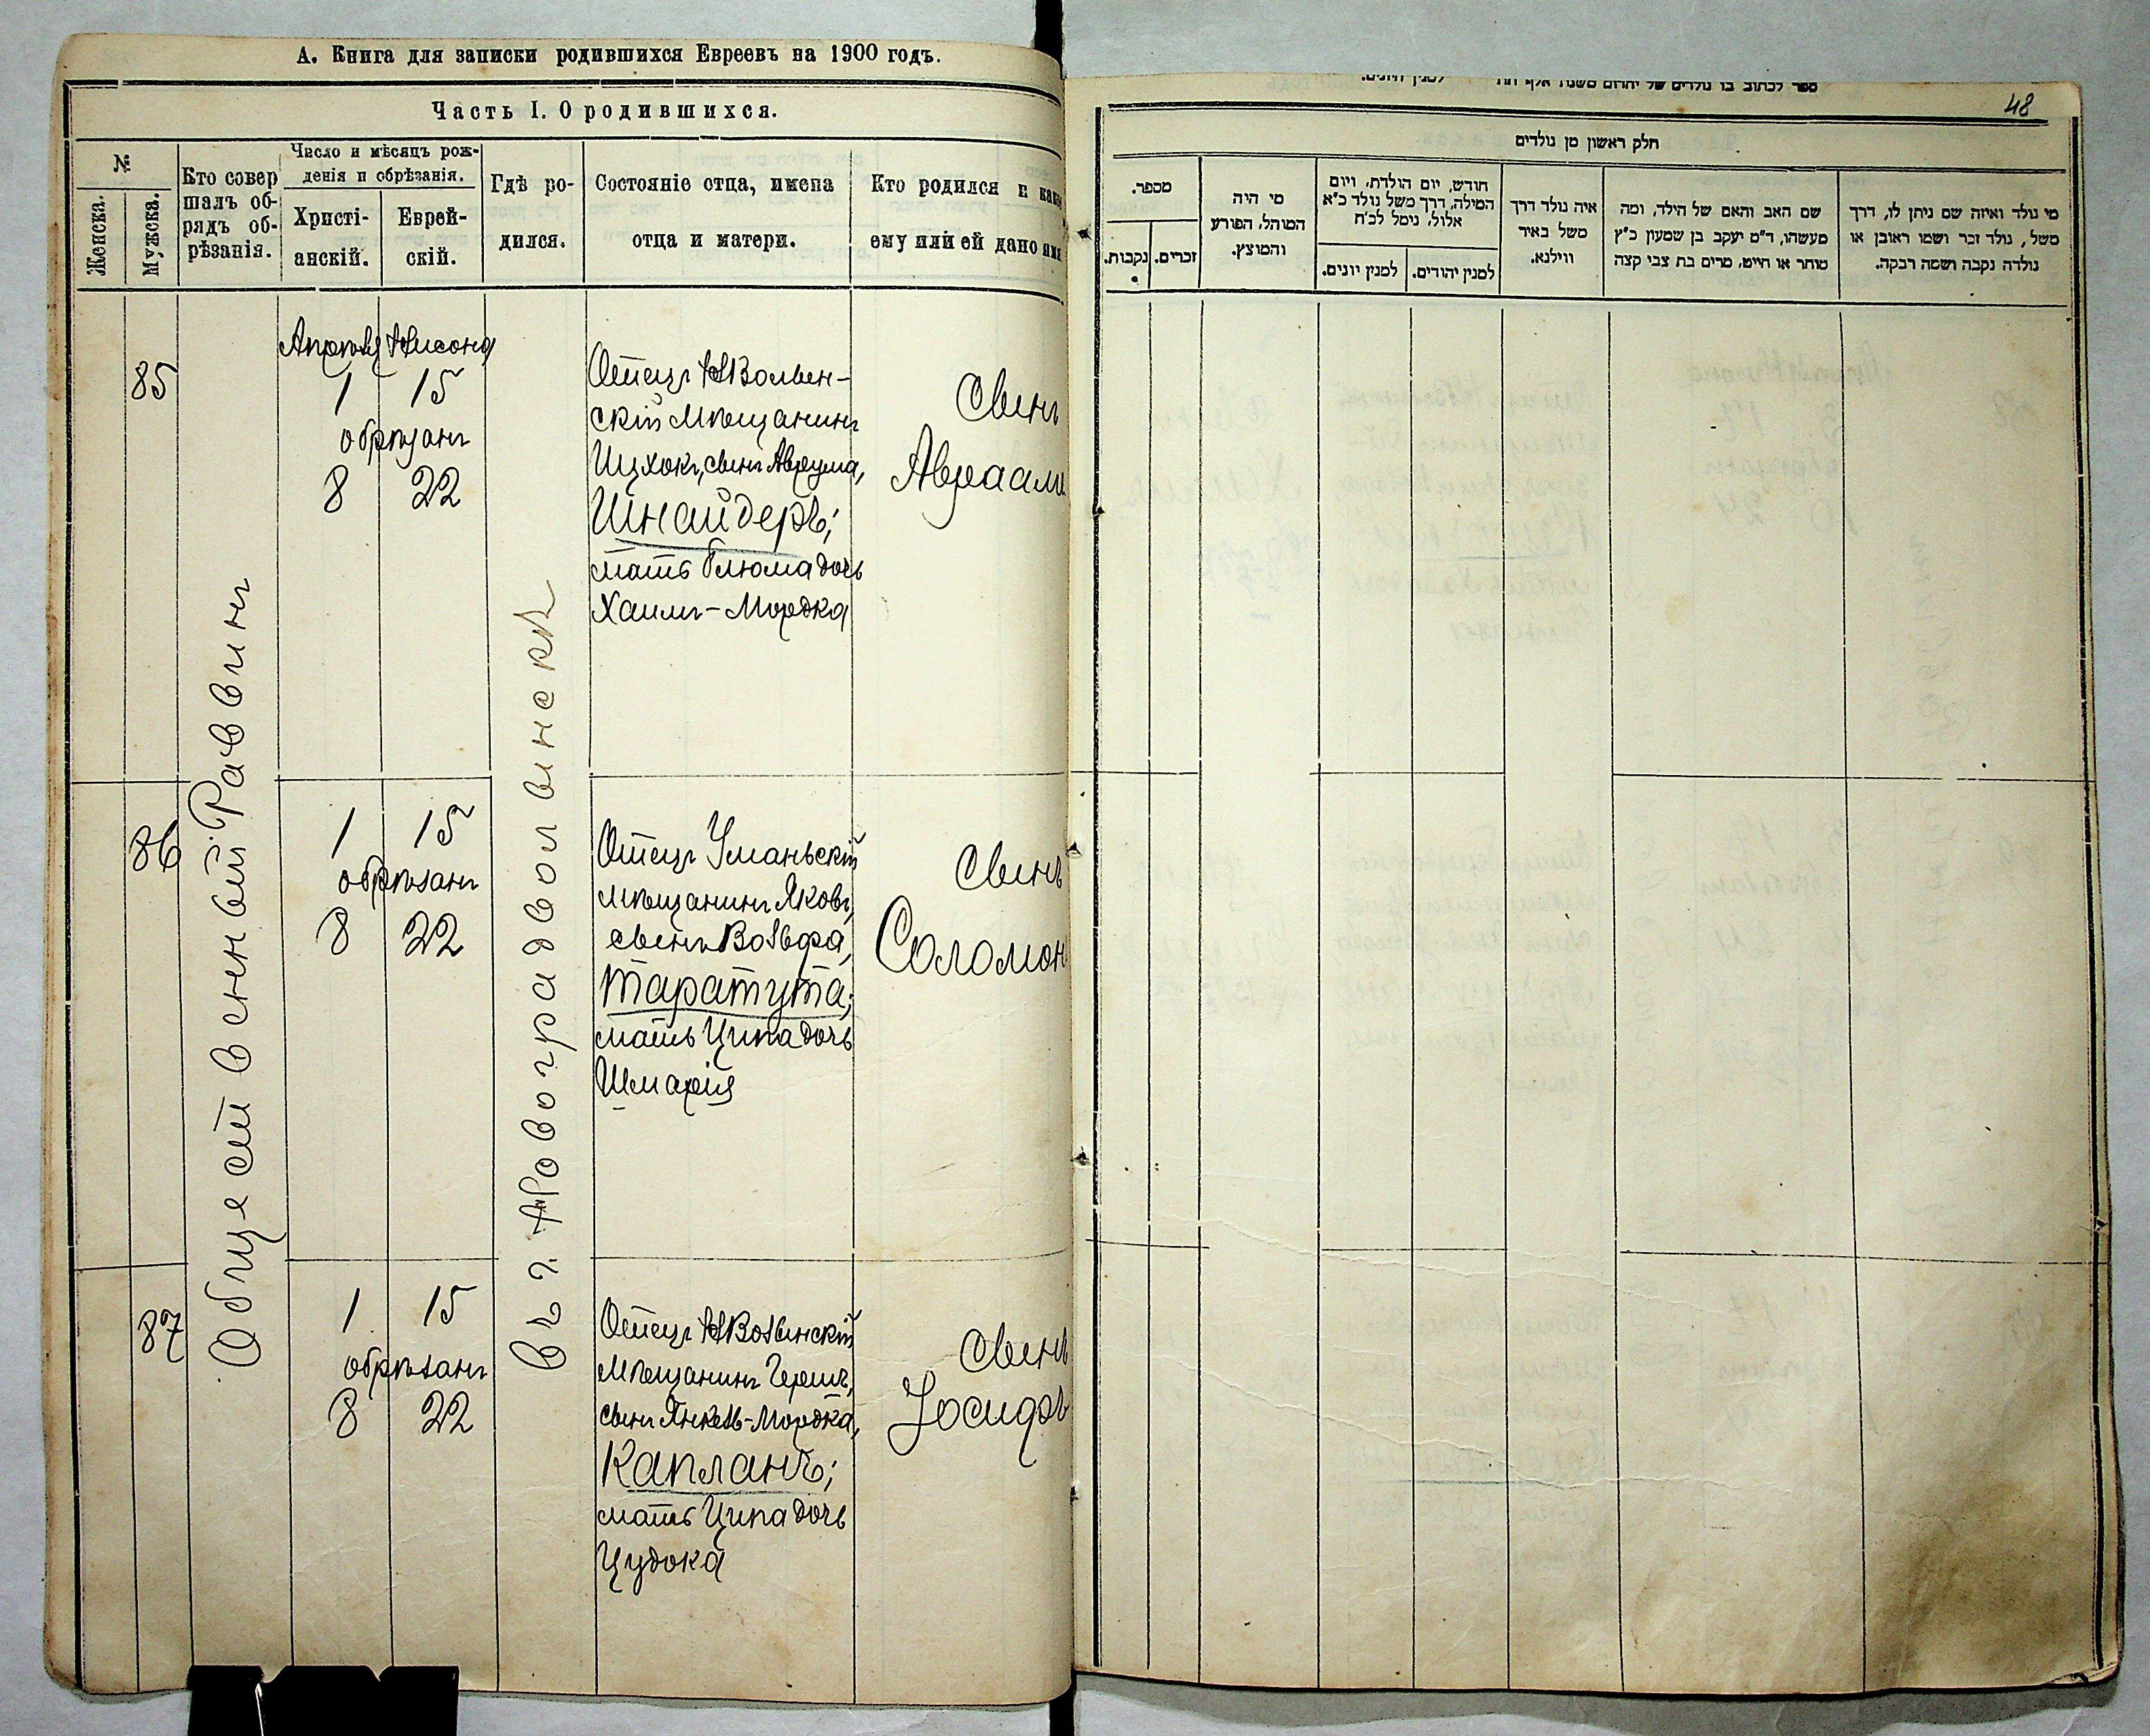 А. Книга для записки родившихся Евреевъ на 1900 годъ.
Часть I. О родившихся.
№
Женска.
Мужска.
Кто совер
шалъ об-
рядъ об-
рѣзанія.
Число и мѣсяцъ рож-
денія и обрѣзанія.
Христі-
анскій.
Еврей-
скій.
Гдѣ ро-
дился.
Состояніе отца, имена
отца и матери.
Кто родился и како
ему или ей дано имя
Общественный Раввинъ
въ г. Новоградволынскѣ
85
Апрѣля Нисона
1 15
обрѣзанъ
8 22
Отецъ НВолын-
скій мѣщанинъ
Ицхокъ, сынъ Аврума,
Шнайдеръ;
мать Блюма дочь
Хаимъ-Мордка
Сынъ
Авраамъ
86
1 15
обрѣзанъ
8 22
Отецъ Уманьскій
мѣщанинъ Яковъ,
сынъ Вольфа,
Таратута;
мать Ципа дочь
Шмарія
Сынъ
Соломон
87
1 15
обрѣзанъ
8 22
Отецъ НВолынскій
мѣщанинъ Гершъ,
сынъ Янкель-Мордка,
Капланъ;
мать Ципа дочь
Цудока
Сынъ
Іосифъ
48
חלק ראשון מן נולדים
מספר.
זכרים.
נקבות.
מי היה
המוהל, הפורע
והמוצץ.
חודש, יום הולדת, ויום
המילה, דרך משל נולד כ"א
אלול, נימל לכ"ח
למנין יהודים.
למנין יונים.
איה נולד דרך
משל באיר
ווילנא.
שם האב והאם של הילד, ומה
מעשהו, ד"מ יעקב בן שמעון כ"ץ
סוחר או חייט, מרים בת צבי קצה
מי נולד ואיזה שם ניתן לו, דרך
משל, נולד זכר ושמו ראובן או
נולדה נקבה ושמה רבקה.